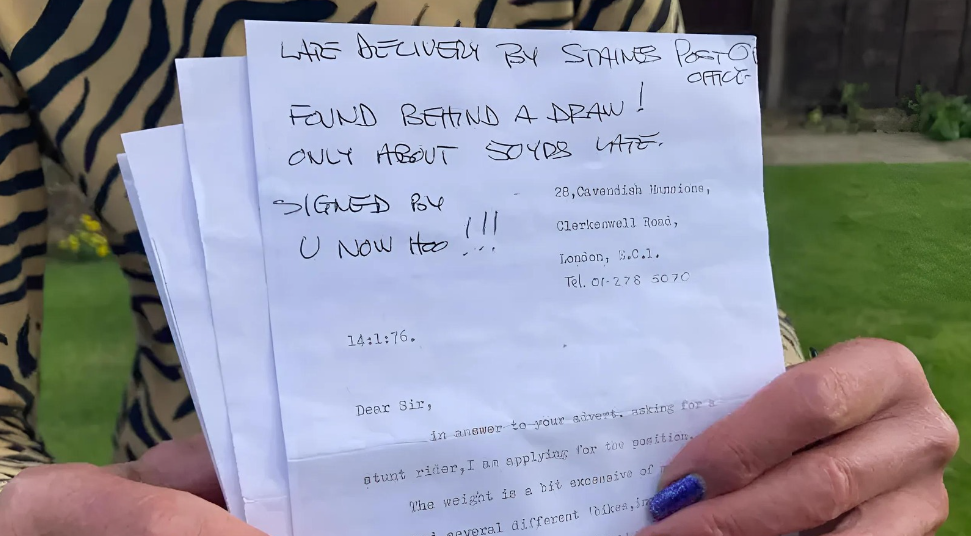 LATE DELIVERY BY STAINES POST O
OFFICE
FOUND BEHIND A DRAW!
ONLY ABOUT 50YDS LATE.
SIGNED BY
U NOW HOO !!!
28,Cavendish Mansions,
Clerkenwell Road,
London, E.C.1.
Tel. 01-278 5070
14:1:76.
Dear Sir,
in answer to your advert. asking for a
stunt rider,I am applying for the position.
The weight is a bit excessive of
several different 'bikes,